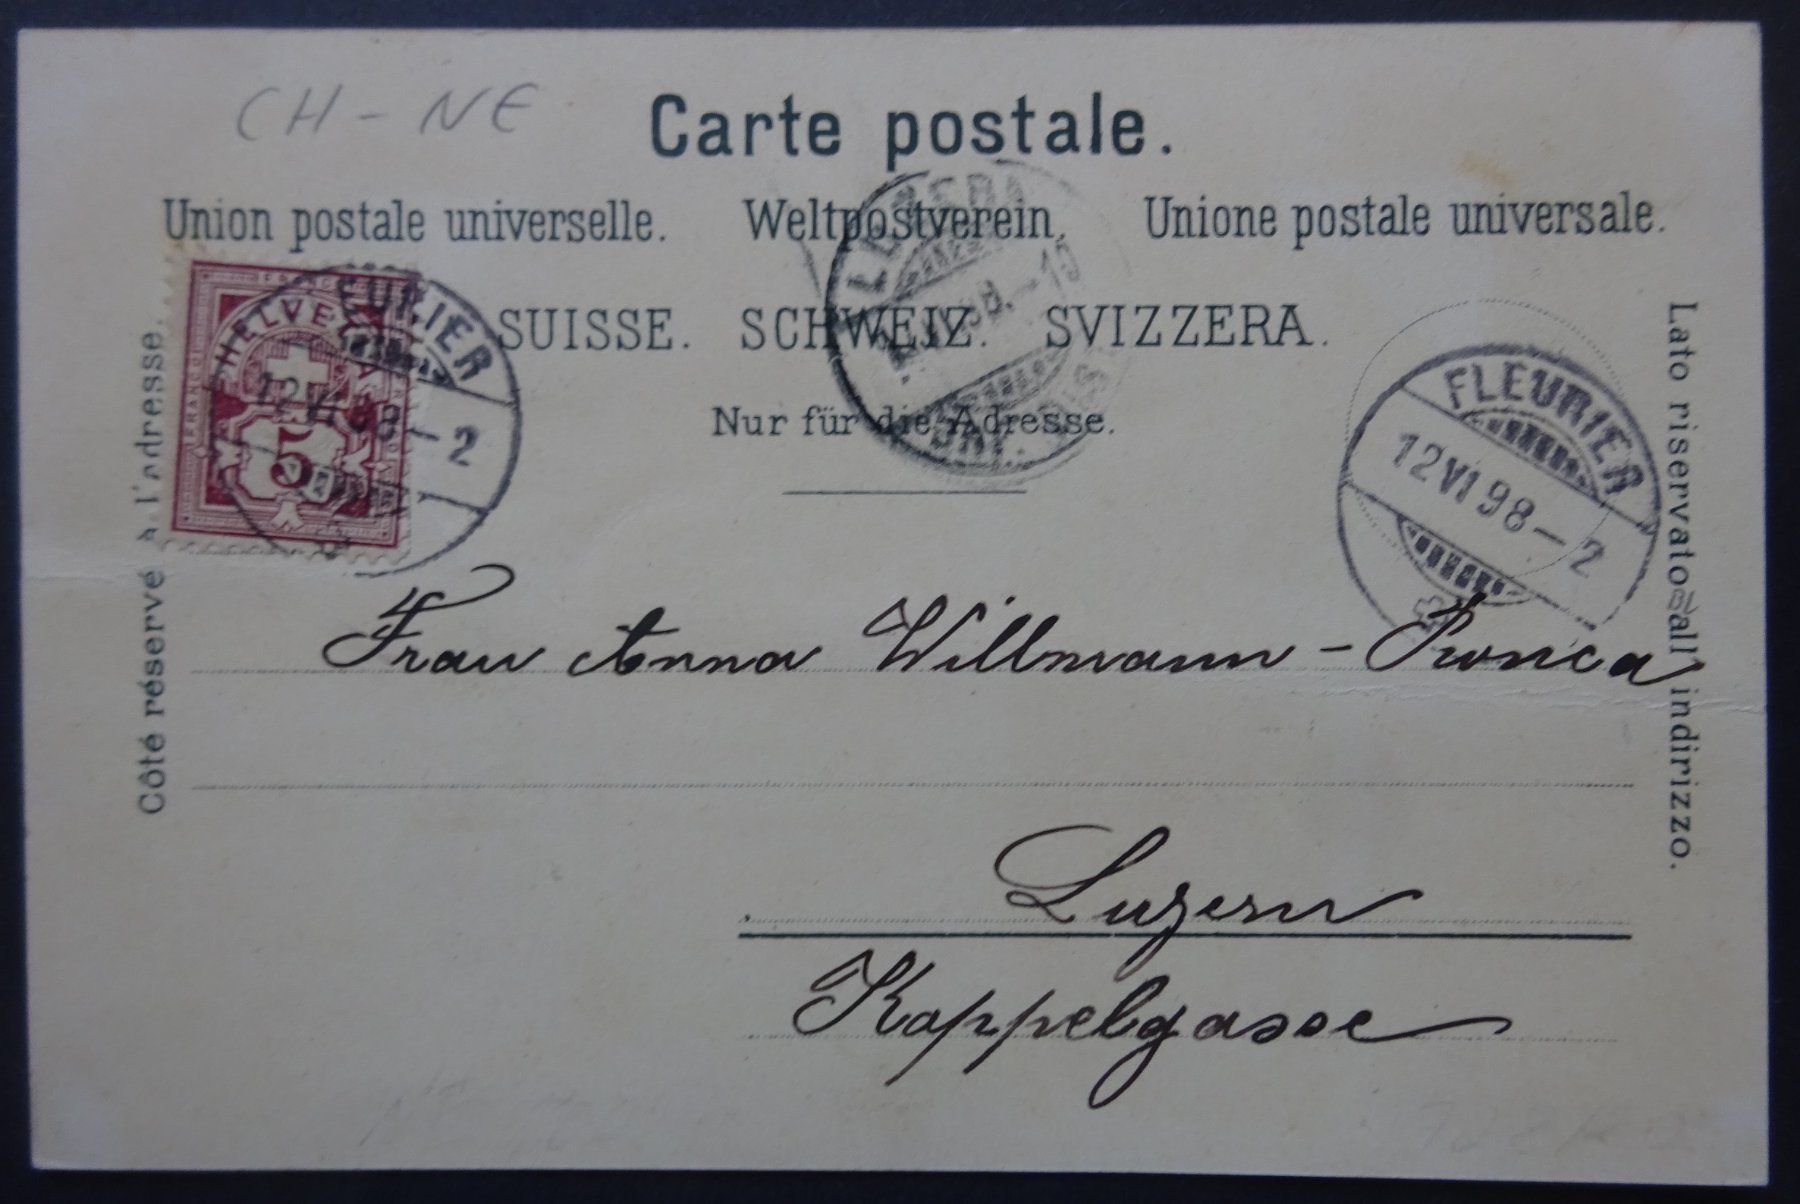 CH-NE
Carte postale.
Union postale universelle. Weltpostverein. Unione postale universale.
SUISSE. SCHWEIZ. SVIZZERA.
Nur für die Adresse.
Côté réservé à l'adresse.
Lato riservato all' indirizzo.
HELVETIA
FRANCO
5
FLEURIER
12 VI 98 – 2
FLEURIER
12 VI 98 – 2
Frau Anna Willmann -
Luzern
Kappelgasse